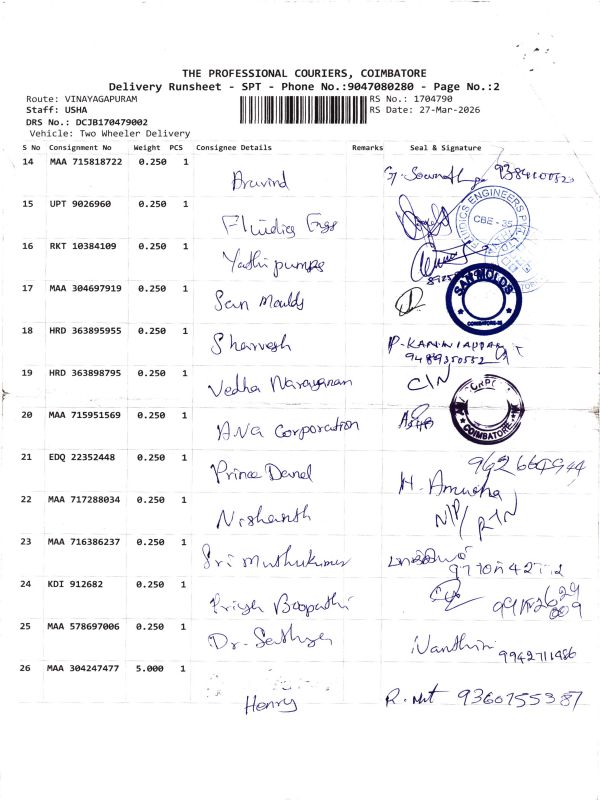 THE PROFESSIONAL COURIERS, COIMBATORE
Delivery Runsheet - SPT - Phone No.:9047080280 - Page No.:2
Route: VINAYAGAPURAM RS No.: 1704790
Staff: USHA RS Date: 27-Mar-2026
DRS No.: DCJB170479002
Vehicle: Two Wheeler Delivery
S No Consignment No Weight PCS Consignee Details Remarks Seal & Signature
14 MAA 715818722 0.250 1 Aravind
15 UPT 9026960 0.250 1 Fluidics Engs CBE - 35
16 RKT 10384109 0.250 1 Yathi pumps
17 MAA 304697919 0.250 1 San Moulds SAN MOLDS COIMBATORE
18 HRD 363895955 0.250 1 Sharvesh P-KANNIAPPAN
9489350552
19 HRD 363898795 0.250 1 Vedha Narayanan C/N
20 MAA 715951569 0.250 1 ANA Corporation COIMBATORE
21 EDQ 22352448 0.250 1 Prince Danel 962664944
22 MAA 717288034 0.250 1 Nishanth N/P/ RTN
23 MAA 716386237 0.250 1 Sri Muthukumar
24 KDI 912682 0.250 1 Priya Boopathi
25 MAA 578697006 0.250 1 Dr. Sathya 9942711486
26 MAA 304247477 5.000 1 Henry 9360755387